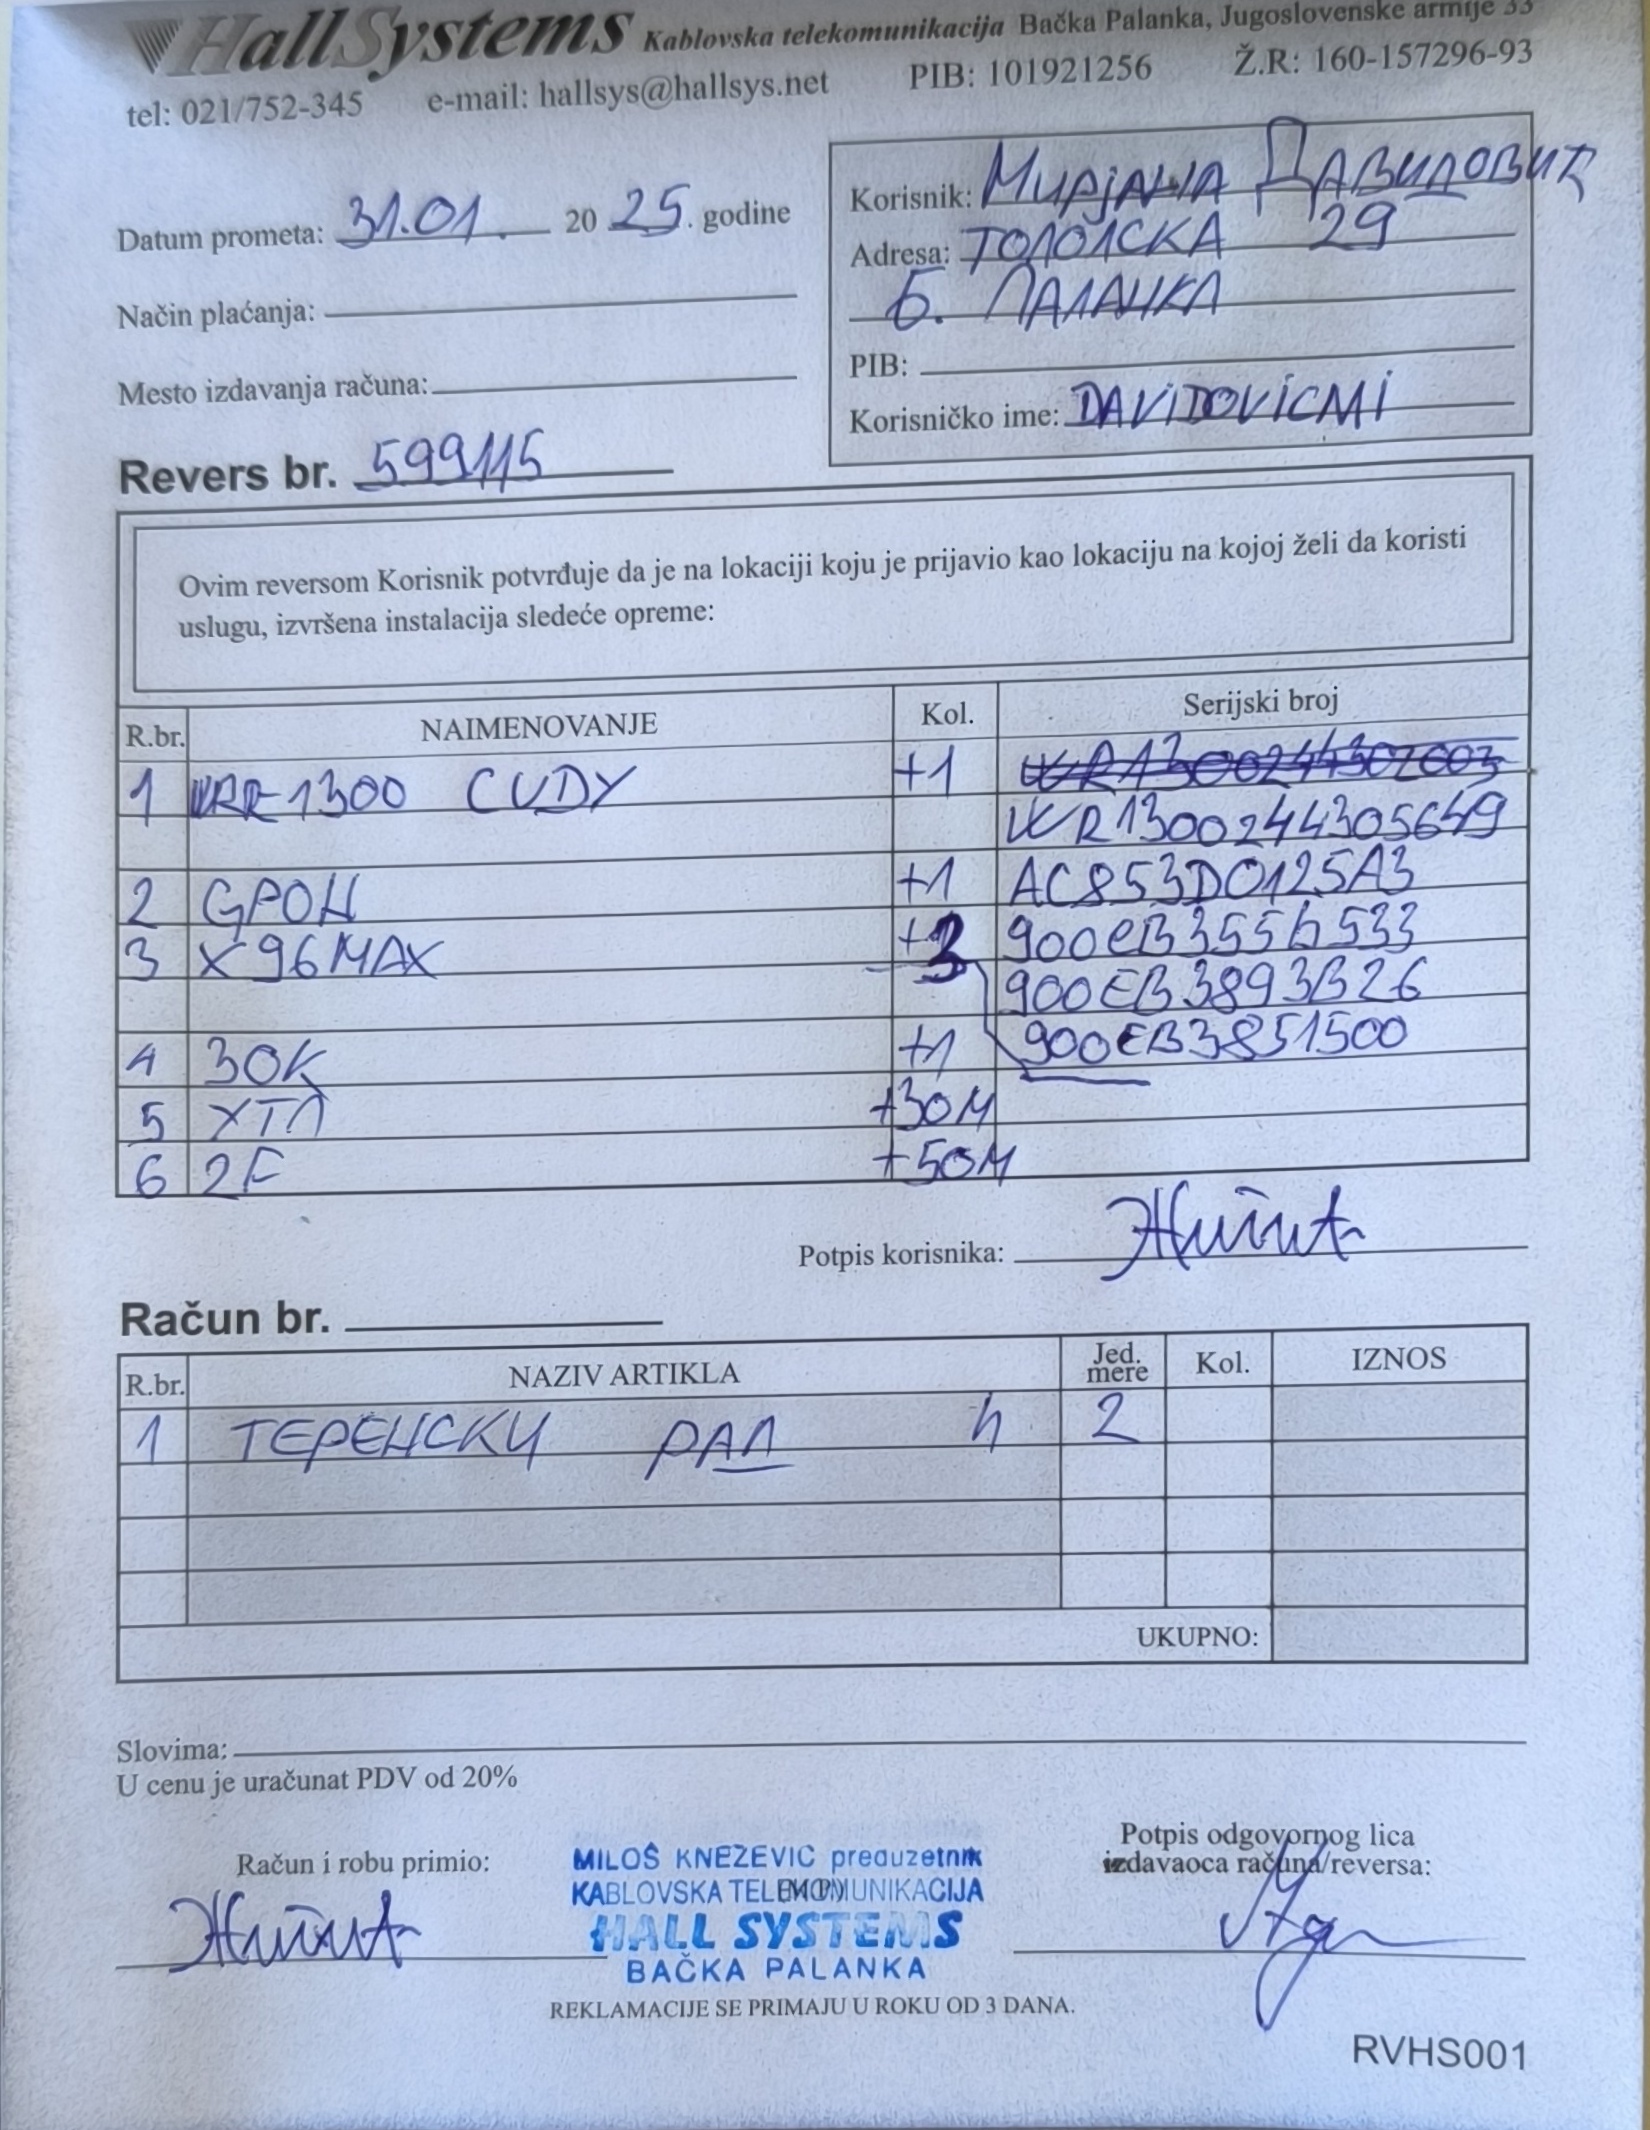 HallSystems Kablovska telekomunikacija Bačka Palanka, Jugoslovenske armije 33
tel: 021/752-345 e-mail: hallsys@hallsys.net PIB: 101921256 Ž.R: 160-157296-93
Datum prometa: 31.01. 20 25. godine
Način plaćanja:
Mesto izdavanja računa:
Revers br. 599115
Korisnik: Мирјана Давидовић
Adresa: ТОПОЛСКА 29
Б. ПАЛАНКА
PIB:
Korisničko ime: DAVIDOVICMI
Ovim reversom Korisnik potvrđuje da je na lokaciji koju je prijavio kao lokaciju na kojoj želi da koristi
uslugu, izvršena instalacija sledeće opreme:
R.br. NAIMENOVANJE Kol. Serijski broj
1 WR1300 CUDY +1 WR1300244302003
WR1300244305649
2 GPOH +1 AC853D0125A3
3 X96MAX +3 900EB3556533
900EB3893B26
900EB3851500
4 ЗОК +1
5 ХТП +30М
6 2F +50М
Potpis korisnika:
Račun br.
R.br. NAZIV ARTIKLA Jed. mere Kol. IZNOS
1 ТЕРЕНСКИ РАД h 2
UKUPNO:
Slovima:
U cenu je uračunat PDV od 20%
Račun i robu primio:
MILOŠ KNEŽEVIĆ preduzetnik
KABLOVSKA TELEKOMUNIKACIJA
HALL SYSTEMS
BAČKA PALANKA
Potpis odgovornog lica
izdavaoca računa/reversa:
REKLAMACIJE SE PRIMAJU U ROKU OD 3 DANA.
RVHS001